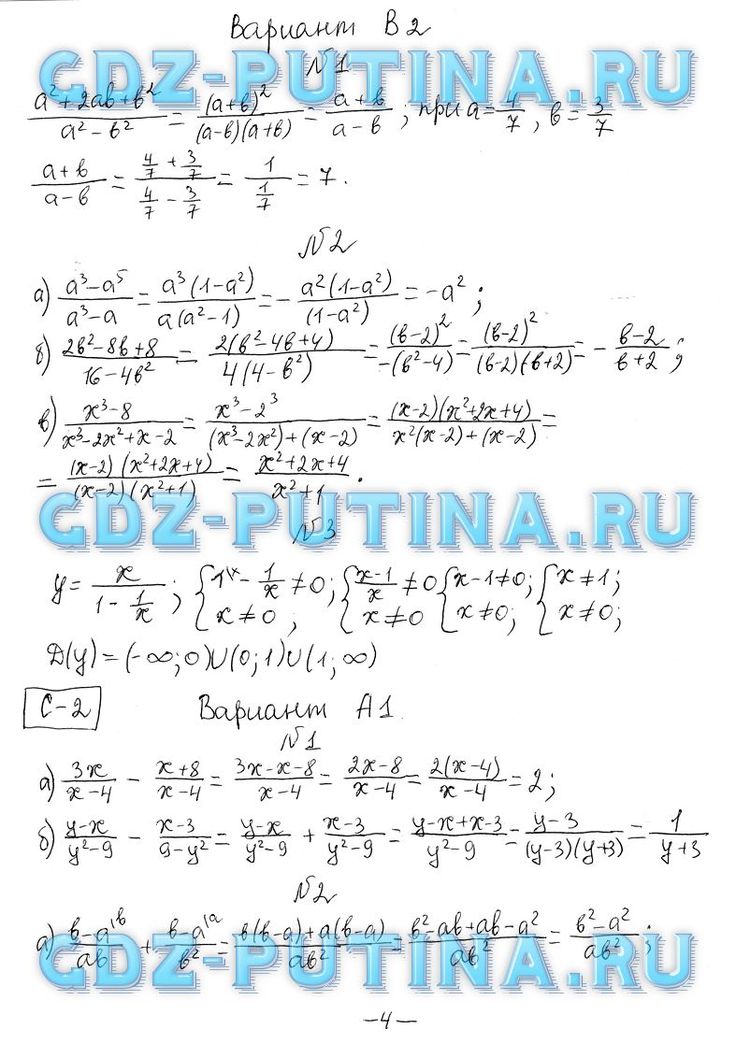 Вариант В2
GDZ-PUTINA.RU
№1
(a²+2ab+b²)/(a²-b²) = (a+b)²/((a-b)(a+b)) = (a+b)/(a-b); при a=4/7, b=3/7
(a+b)/(a-b) = (4/7+3/7)/(4/7-3/7) = 1/(1/7) = 7.
№2
а) (a³-a⁵)/(a³-a) = a³(1-a²)/(a(a²-1)) = -a²(1-a²)/(1-a²) = -a²;
б) (2b²-8b+8)/(16-4b²) = 2(b²-4b+4)/(4(4-b²)) = (b-2)²/(-(b²-4)) = (b-2)²/((b-2)(b+2)) = -(b-2)/(b+2);
в) (x³-8)/(x³-2x²+x-2) = (x³-2³)/((x³-2x²)+(x-2)) = (x-2)(x²+2x+4)/(x²(x-2)+(x-2)) =
= (x-2)(x²+2x+4)/((x-2)(x²+1)) = (x²+2x+4)/(x²+1).
GDZ-PUTINA.RU
№3
y = x/(1-1/x); {1-1/x≠0; x≠0; {(x-1)/x≠0 x≠0 {x-1≠0; x≠0; {x≠1; x≠0;
D(y)=(-∞;0)∪(0;1)∪(1;∞)
С-2 Вариант А1.
№1
а) 3x/(x-4) - (x+8)/(x-4) = (3x-x-8)/(x-4) = (2x-8)/(x-4) = 2(x-4)/(x-4) = 2;
б) (y-x)/(y²-9) - (x-3)/(9-y²) = (y-x)/(y²-9) + (x-3)/(y²-9) = (y-x+x-3)/(y²-9) = (y-3)/((y-3)(y+3)) = 1/(y+3)
№2
а) (b-a)/ab + (b-a)/b² = (b(b-a)+a(b-a))/ab² = (b²-ab+ab-a²)/ab² = (b²-a²)/ab²;
GDZ-PUTINA.RU
-4-